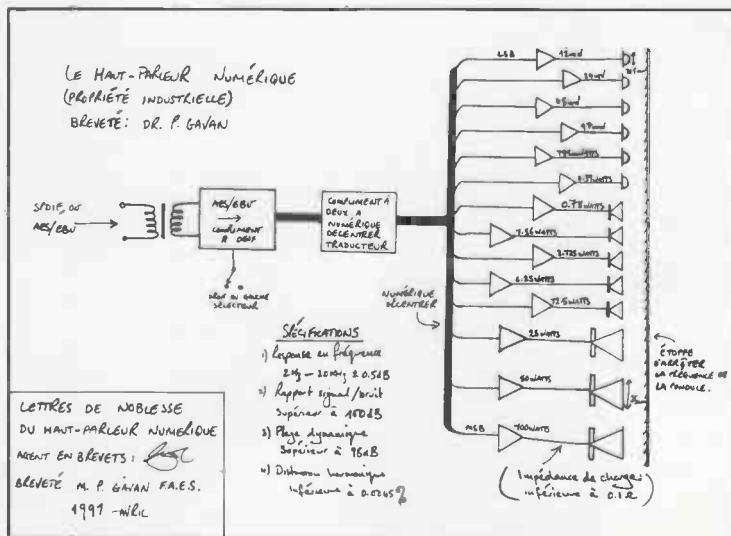 LE HAUT-PARLEUR NUMÉRIQUE
(PROPRIÉTÉ INDUSTRIELLE)
BREVETÉ: DR. P. GAVAN
SPDIF, OU
AES/EBU
AES/EBU
COMPLIMENT
A DEUX
DROIT OU GAUCHE
SÉLECTEUR
COMPLIMENT À
DEUX A
NUMÉRIQUE
DÉCENTRER
TRADUCTEUR
NUMÉRIQUE
DÉCENTRER
LSB
12mW
24mW
97mW
0.39WATTS
0.78WATTS
1.56WATTS
3.125WATTS
6.25WATTS
12.5WATTS
25WATTS
50WATTS
MSB
100WATTS
ÉTOFFE
D'ARRÊTER
LA FRÉQUENCE DE
LA PONDULE.
(Impédance de charge:
inférieure à 0.1Ω)
SPÉCIFICATIONS
1) Response en fréquence
2Hz – 20KHz ± 0.5dB
2) Rapport signal/bruit
Supérieur à 160dB
3) Plage dynamique
Supérieur à 96dB
4) Distorsion harmonique
inférieure à
LETTRES DE NOBLESSE
DU HAUT-PARLEUR NUMÉRIQUE
AGENT EN BREVETS:
BREVETÉ M. P. GAVAN F.A.E.S.
1991 - AVRIL